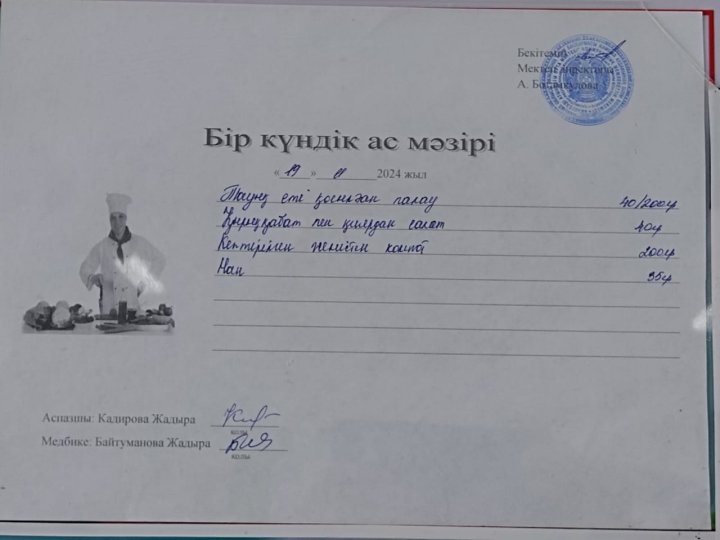 Бекітемін
Мектеп директоры
А. Босымкулова
Бір күндік ас мәзірі
« 19 » 11 2024 жыл
Тауық еті қосылған палау 40/200гр
Қырыққабат пен қиярдан салат 40гр
Кептірілген жемістен компот 200гр
Нан 35гр
Аспазшы: Кадирова Жадыра
қолы
Медбике: Байтуманова Жадыра
қолы